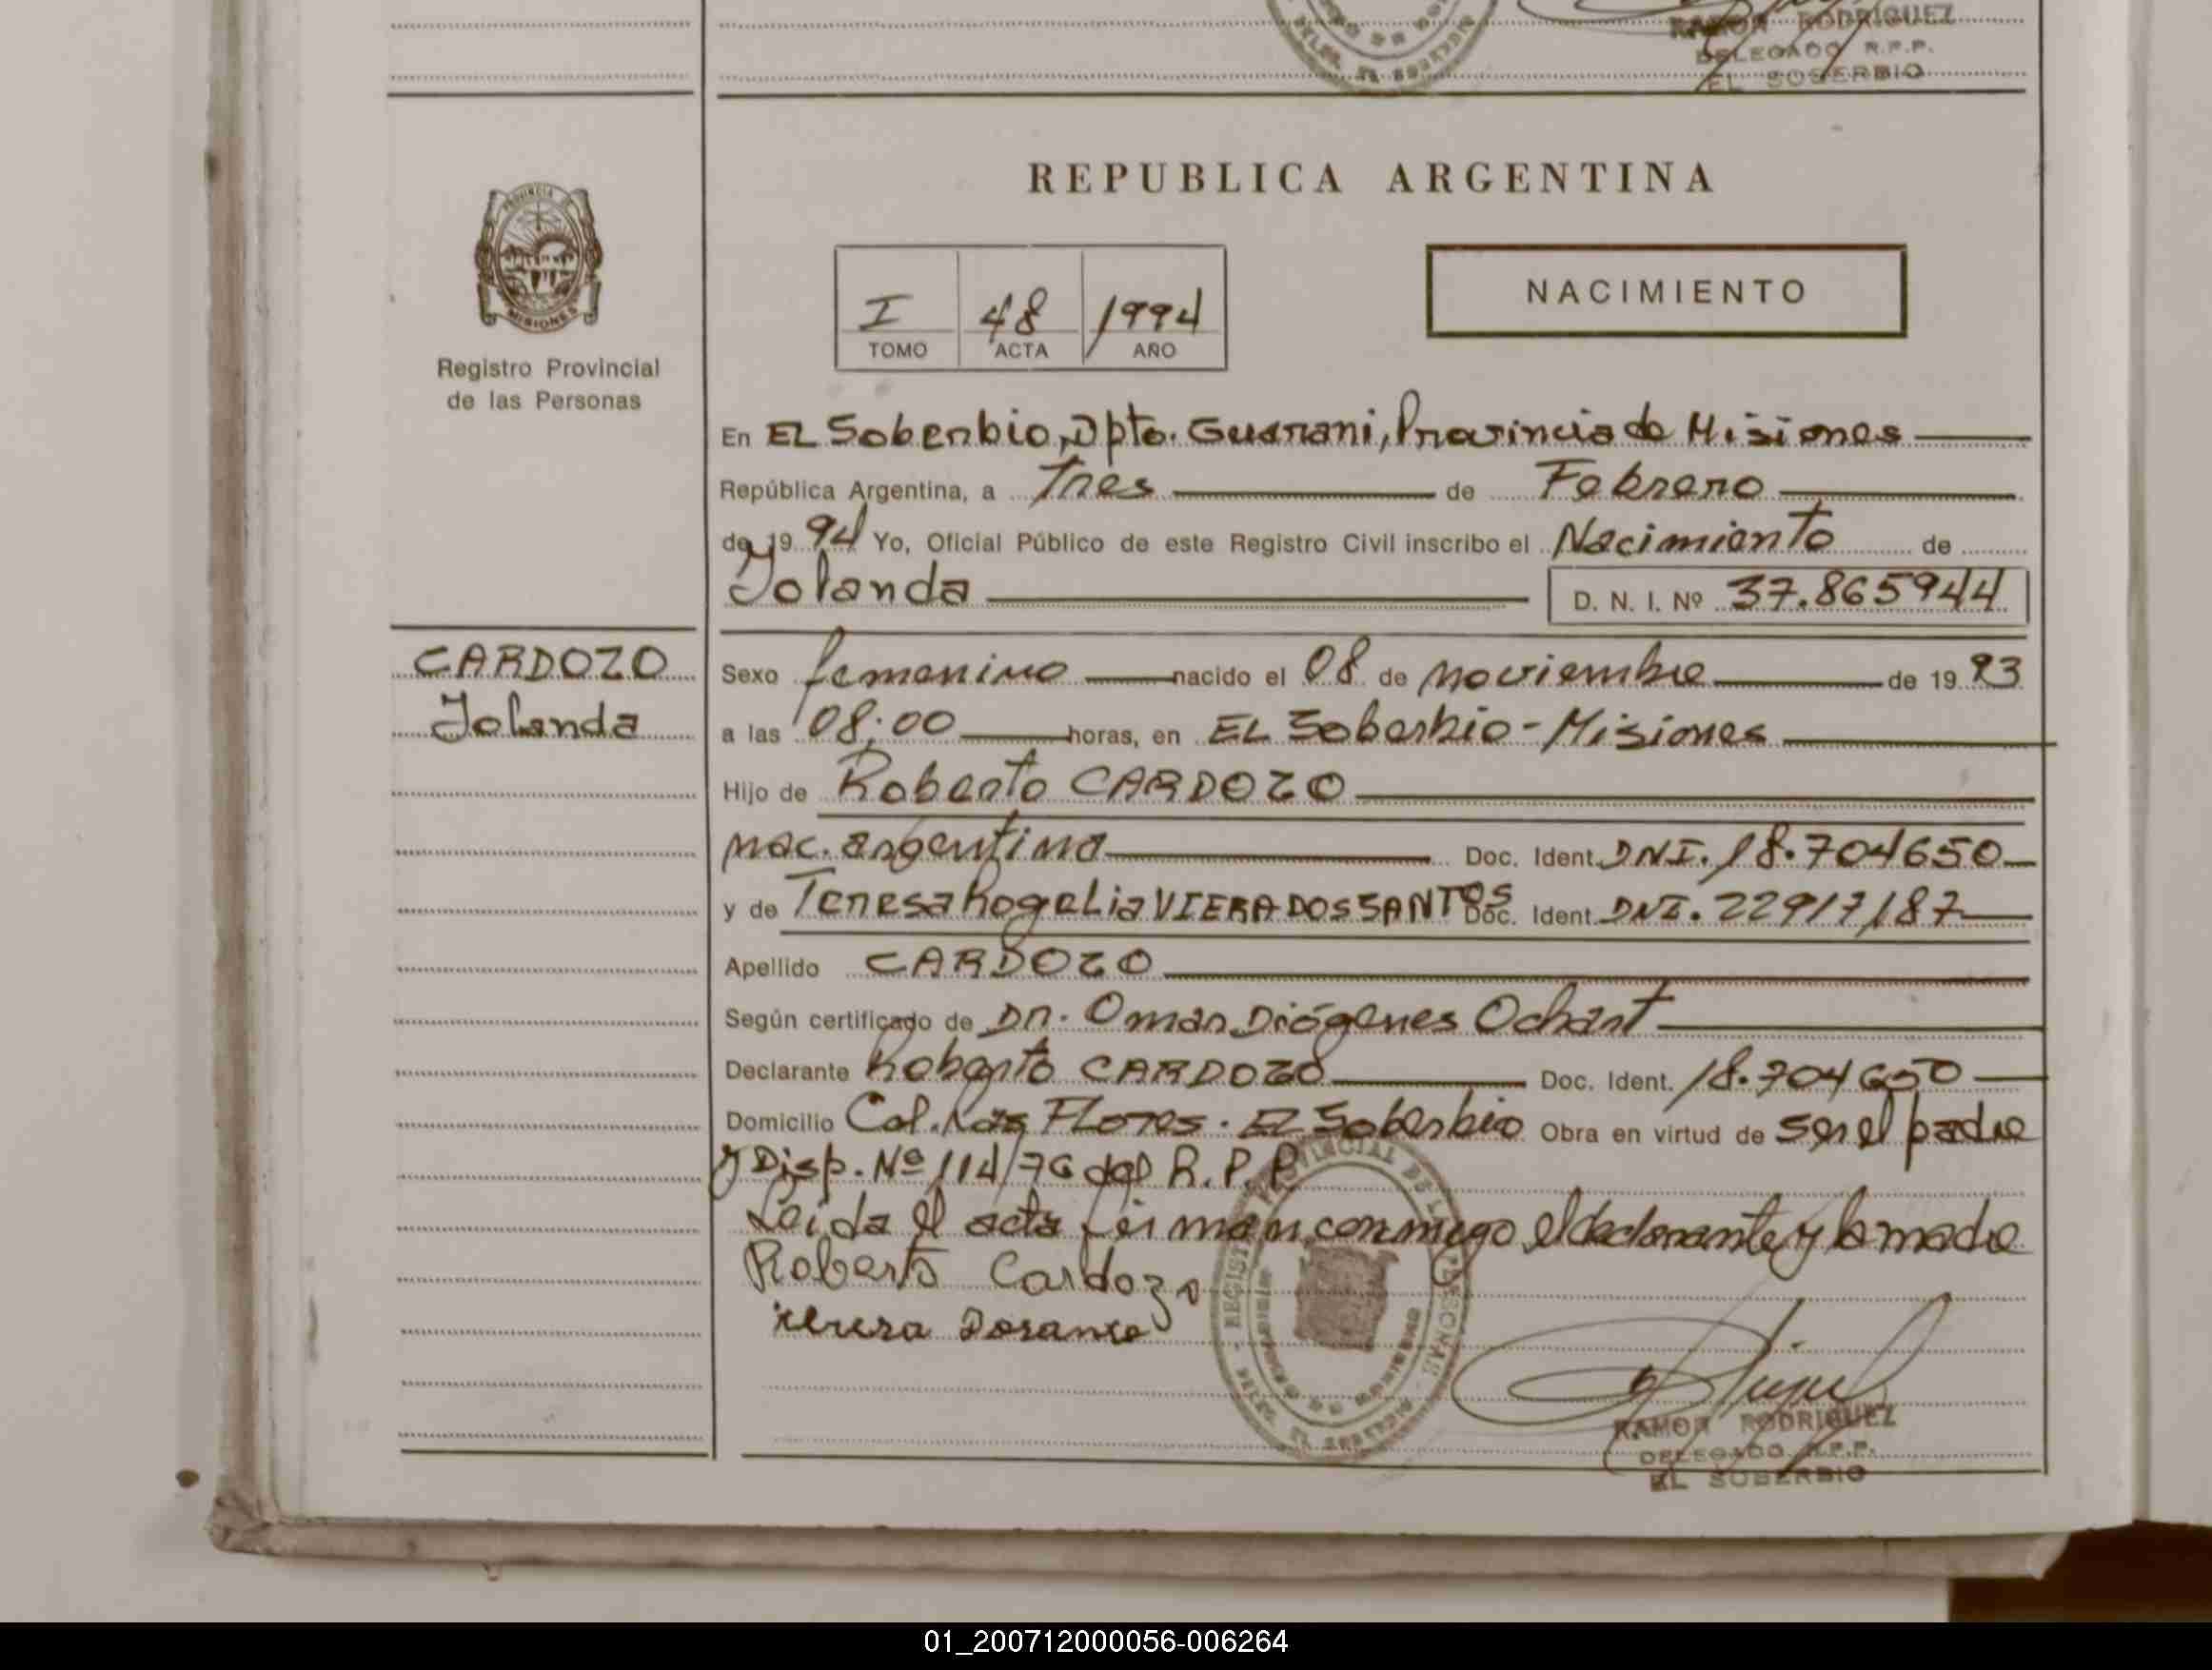 RAMON RODRIGUEZ
DELEGADO R.P.P.
EL SOBERBIO
PROVINCIA DE
MISIONES
Registro Provincial
de las Personas
REPUBLICA ARGENTINA
I 48 1994
TOMO ACTA AÑO
NACIMIENTO
En EL Soberbio, Dpto. Guarani, Provincia de Misiones
República Argentina, a Tres de Febrero
de 19 94 Yo, Oficial Público de este Registro Civil inscribo el Nacimiento de
Yolanda
D. N. I. Nº 37.865944
CARDOZO
Yolanda
Sexo femenino nacido el 08 de noviembre de 19 93
a las 08:00 horas, en EL Soberbio - Misiones
Hijo de Roberto CARDOZO
nac. argentina Doc. Ident. DNI. 18.704650
y de Teresa Rogelia VIERA DOS SANTOS Doc. Ident. DNI. 22917187
Apellido CARDOZO
Según certificado de Dr. Omar Diógenes Ochart
Declarante Roberto CARDOZO Doc. Ident. 18.704650
Domicilio Col. Las Flores. El Soberbio Obra en virtud de ser el padre
y Disp. Nº 114/76 del R. P. P.
Leida el acta firman conmigo el declarante y la madre
Roberto Cardozo
RAMON RODRIGUEZ
DELEGADO R.P.P.
EL SOBERBIO
01_200712000056-006264